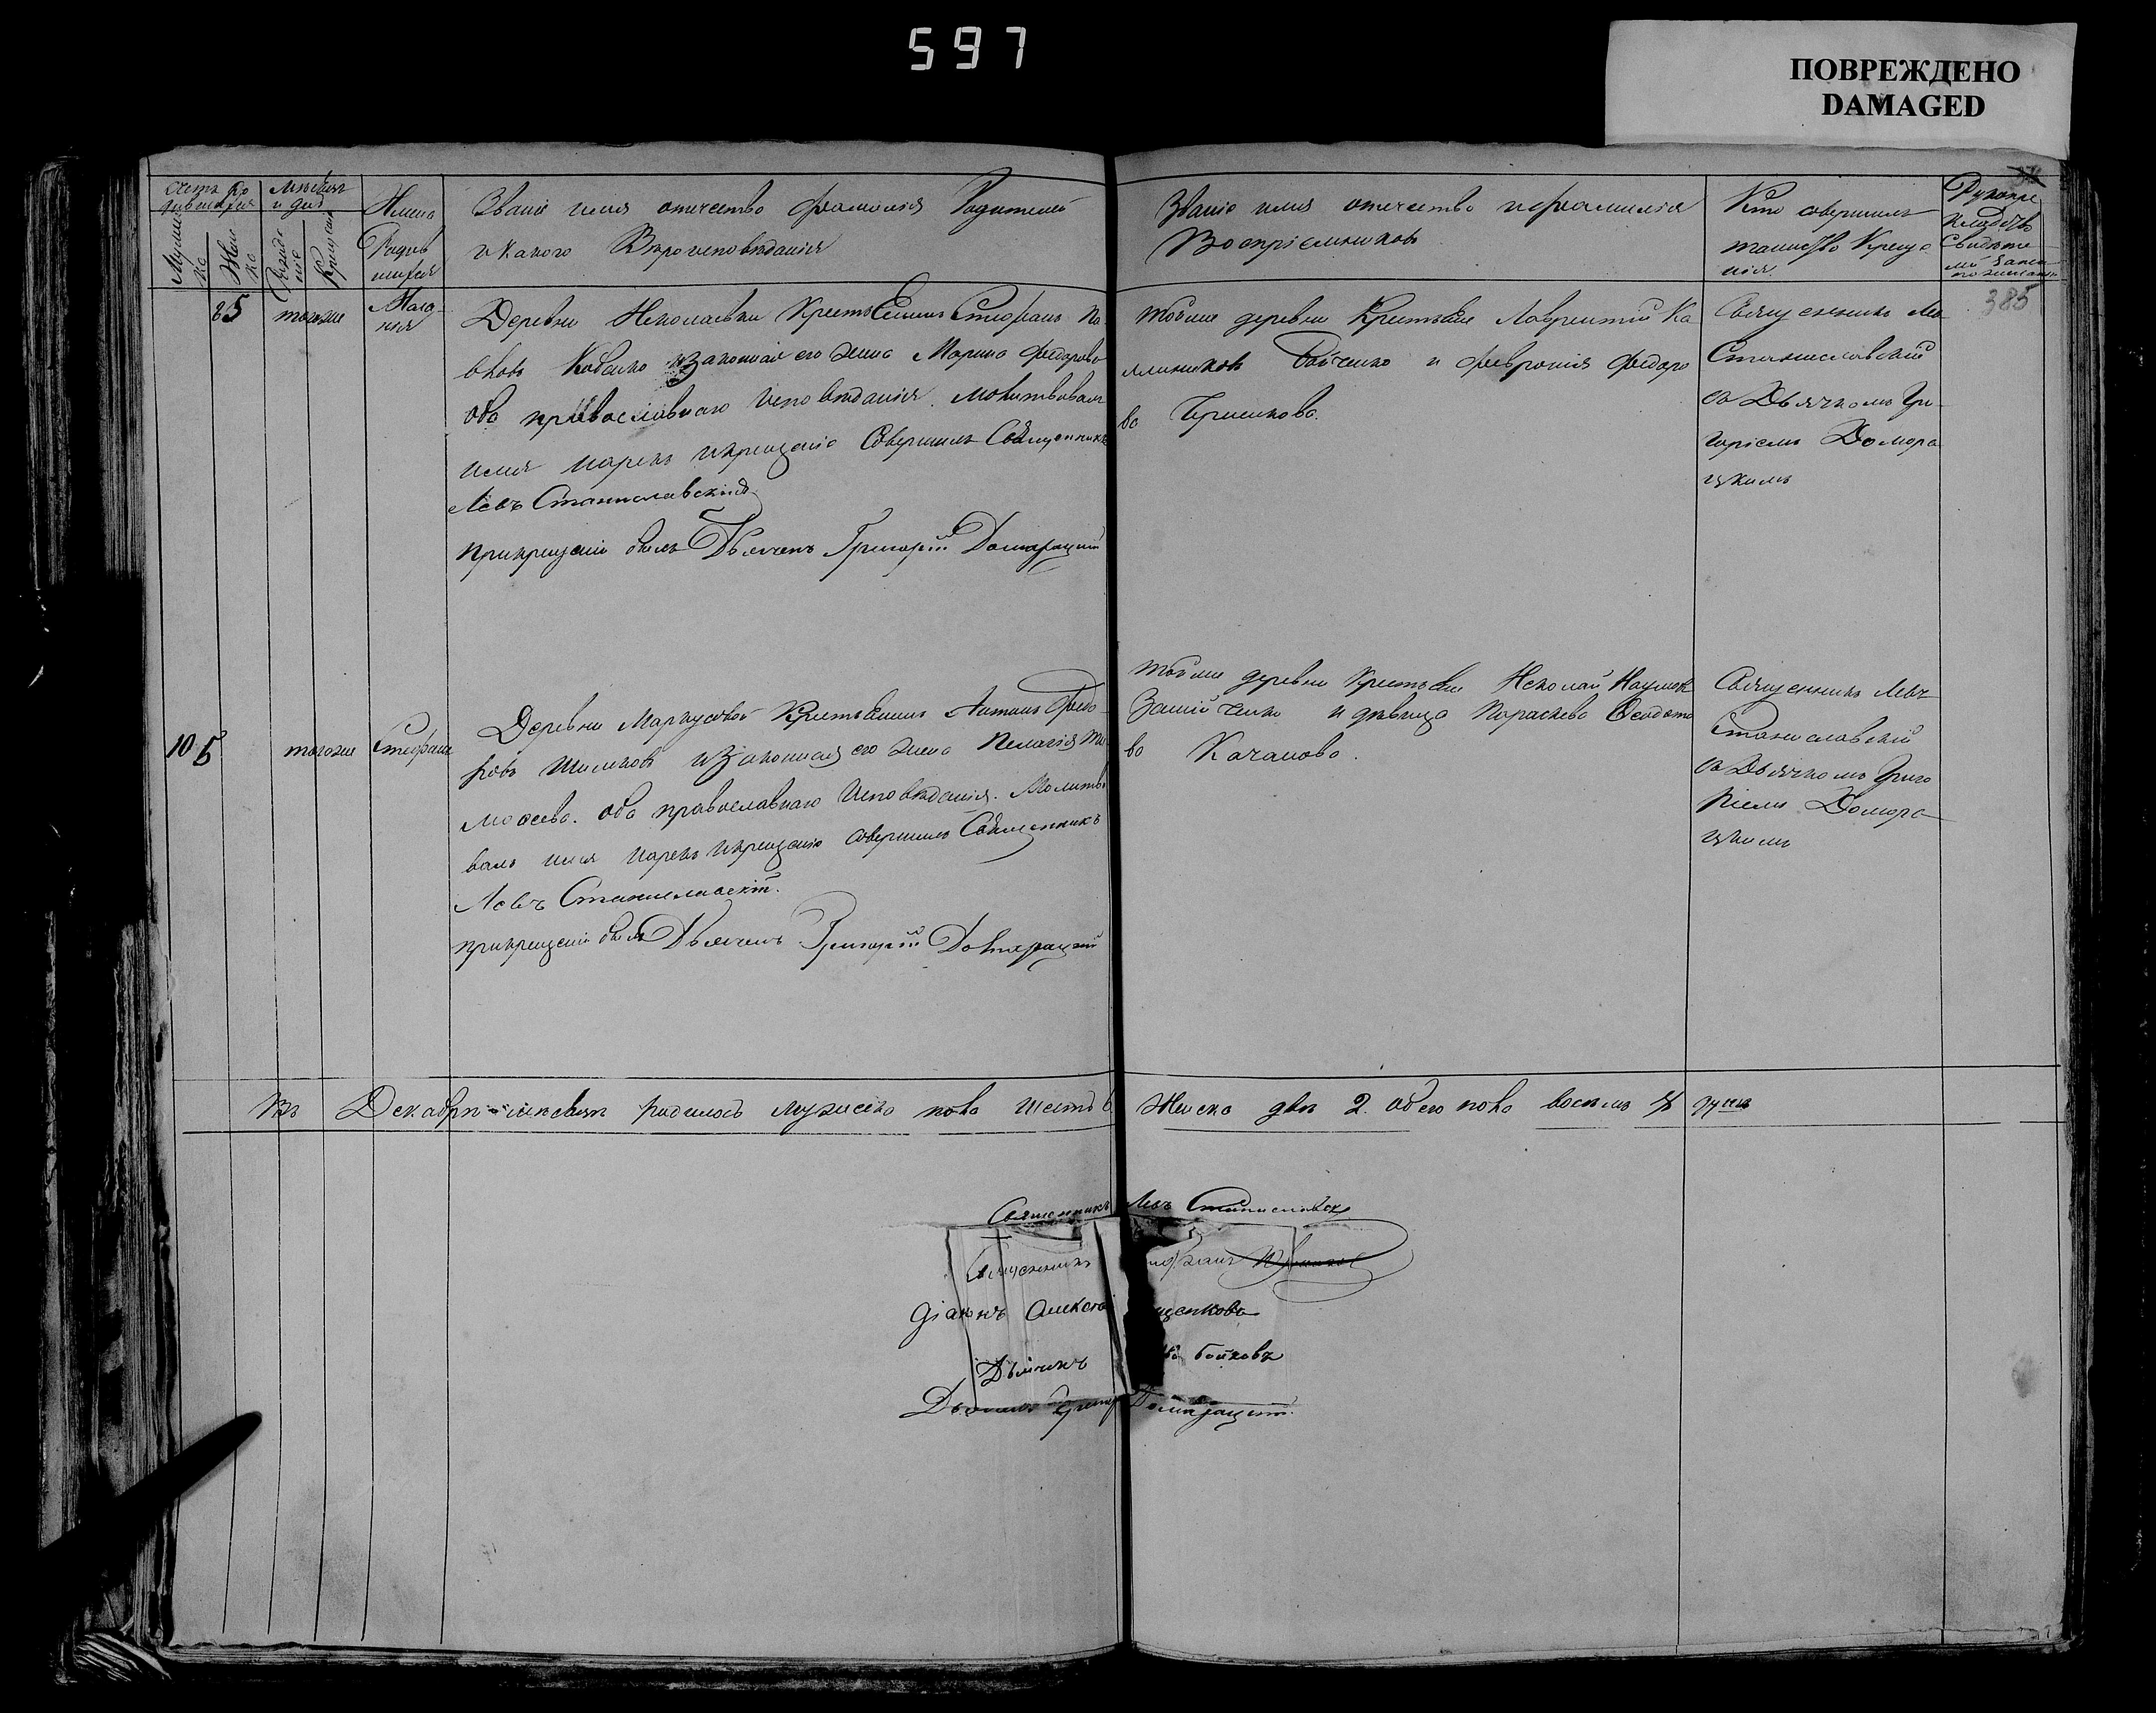 597
ПОВРЕЖДЕНО
DAMAGED
Счетъ ро
дившихся
Мужеска
Женска
Мѣсяцъ
и дня
Рожденіе
Крещенія
Имена
Родив
шихся
Званіе имя отечество фамилія Родителей
и какого Вѣроисповѣданія
Званіе имя отечество и фамилия
Воспріемниковъ
Кто совершилъ
таинство Креще
нія
385
85
тогоже
Мела
нія
Деревни Николаевки Крестьянинъ Стефанъ Яко
влевъ и законная его жена Марина Федорова
оба православнаго исповѣданія. Молитвовалъ
имя нарекъ и крещеніе Совершилъ Священникъ
Левъ Станиславскій
при крещеніи былъ Дьячекъ Григорій Домарацкій
тойже деревни Крестьяне Лаврентій Ка
Бойченко и Февронія Федоро
ва
Священникъ Ле
Станиславскій
съ Дьячкомъ Гри
горіемъ Домора
цкимъ
105
тогоже
Стефанъ
Деревни Маркусовой Крестьянинъ Антонъ Федо
ровъ и законная его жена Пелагія Ти
моѳеева. оба православнаго Исповѣданія. Молитво
валъ имя нарекъ и крещеніе совершилъ Священникъ
Левъ Станиславскій.
при крещеніи былъ Дьячекъ Григорій Домарацкій
тойже деревни Крестьяне Николай Наумов
и дѣвица Параскева Ѳеодото
ва Качанова.
Священникъ Левъ
Станиславскій
съ Дьячкомъ Григо
ріемъ Домора
цкимъ
Въ Декабрѣ мѣсяцѣ родилось мужеска пола шесть 6 Женска двѣ 2. обоего пола восемь 8 душъ
Священникъ Левъ Станиславск
Священникъ
Діаконъ Алексей щенково
Дьячикъ Бойковъ
Дьячекъ Григор Домарацкій.